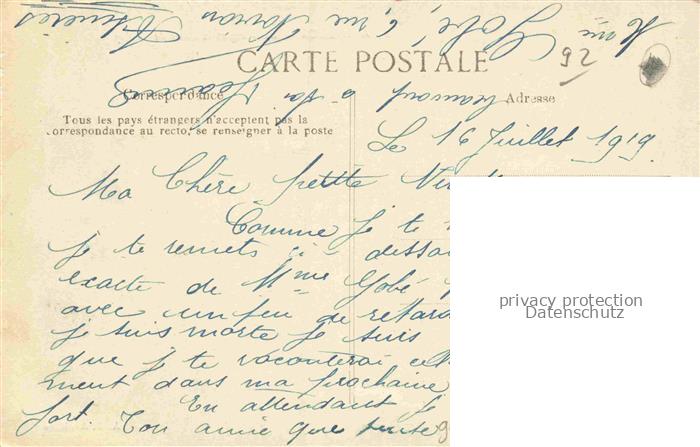 Mme Gobé, 6, rue Asnières
CARTE POSTALE
92
Correspondance
Adresse
Tous les pays étrangers n'acceptent pas la
correspondance au recto, se renseigner à la poste
Le 16 Juillet 1919
Ma Chère petite
Comme je te
je te remets ci-
exacte de Mme Gobé
avec un peu de retard
je suis morte je suis
que je te raconterai
ment dans ma prochaine
En attendant je
fort. Ton amie que
privacy protection
Datenschutz